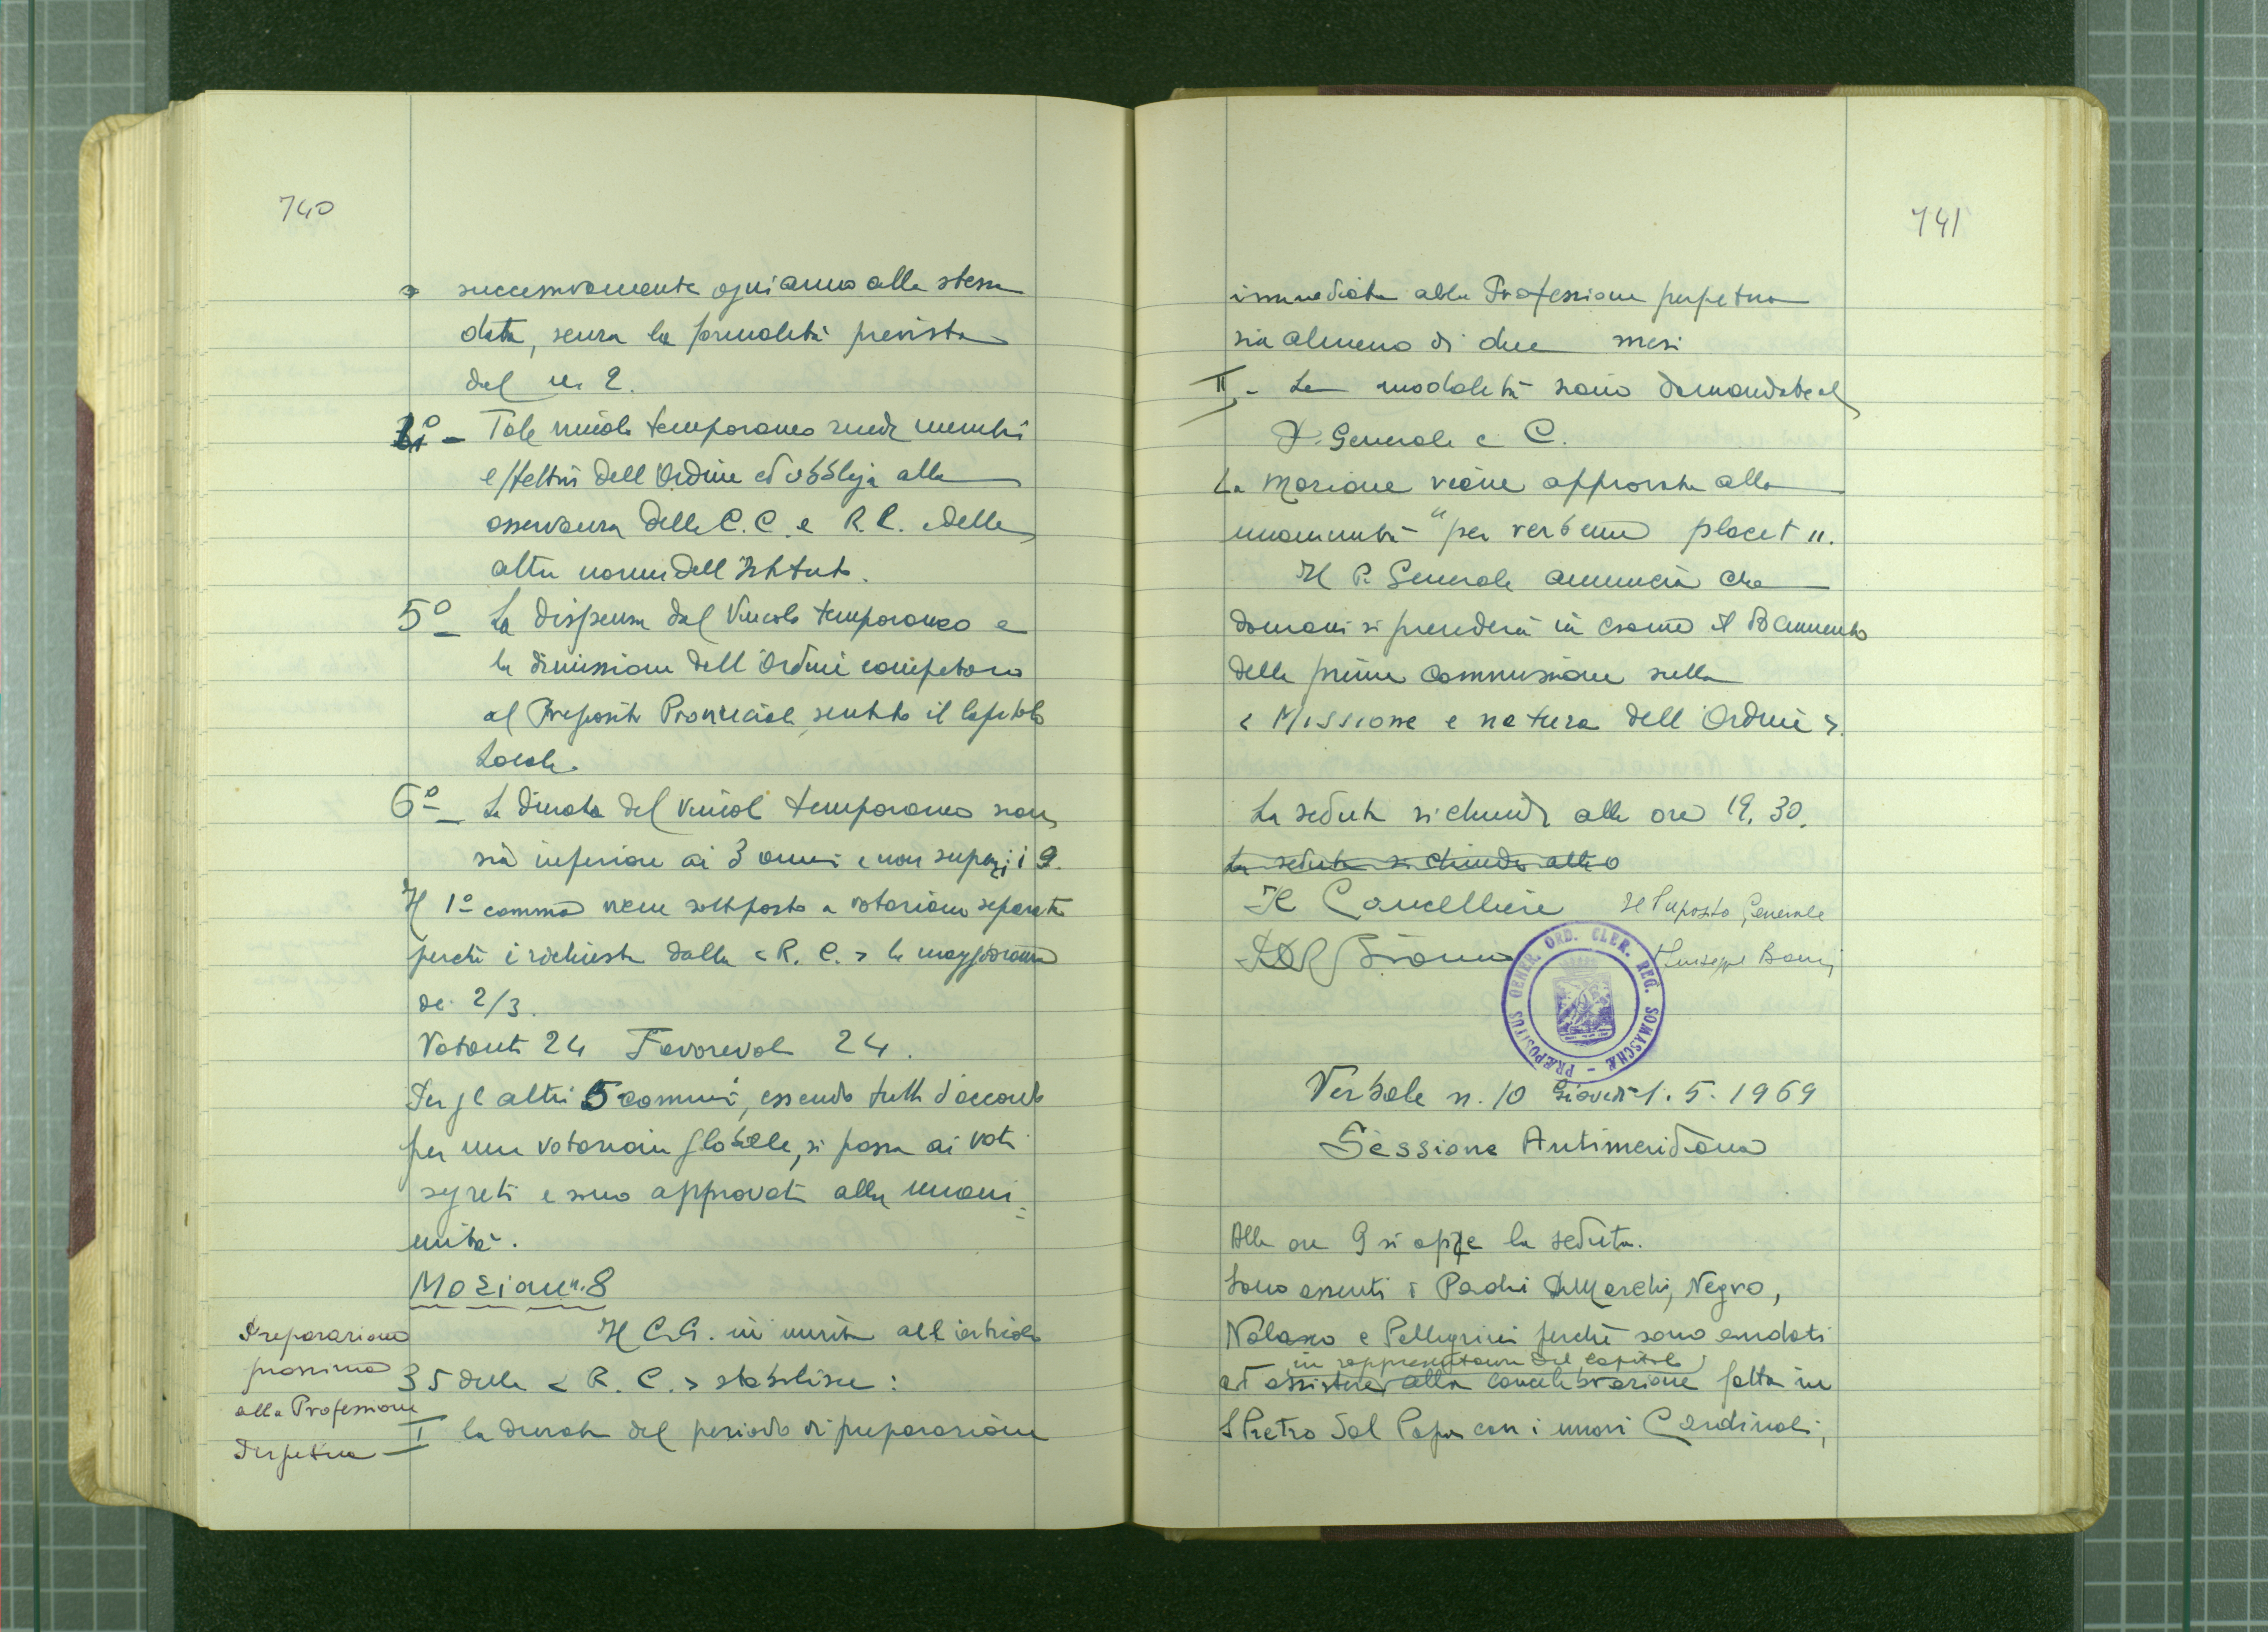 740
successivamente ogni anno alla stessa
data, senza la formalità prevista
dal n. 2.
4º - Tale vincolo temporaneo rende membri
effettivi dell'Ordine ed obbliga alla
osservanza delle C.C. e R.C. e delle
altre norme dell'Istituto.
5º - La dispensa dal Vincolo temporaneo e
la dimissione dell'Ordine competono
al Preposito Provinciale, sentito il Capitolo
Locale.
6º - La durata del vincolo temporaneo non
sia inferiore ai 3 anni e non superi i 9.
Il 1º comma viene sottoposto a votazione separata
perché è richiesta dalla < R. C. > la maggioranza
dei 2/3.
Votanti 24 Favorevoli 24.
Per gli altri 5 commi, essendo tutti d'accordo
per una votazione globale, si passa ai voti
segreti e sono approvati alla unani=
mità.
Mozione n. 8
Il C.G. in merito all'articolo
Preparazione
prossima
alla Professione
Perpetua
35 della < R. C. > stabilisce:
I la durata del periodo di preparazione
741
immediata alla Professione perpetua
sia almeno di due mesi
II - Le modalità siano demandate al
P. Generale e C.
La Mozione viene approvata alla
unanimità "per verbum placet".
Il P. Generale annuncia che
domani si prenderà in esame il Documento
della prima Commissione sulla
< Missione e natura dell'Ordine >.
La seduta si chiude alle ore 19,30.
La seduta si chiude alle o
Il Cancelliere Il Preposito Generale
Giuseppe
PRÆPOSITUS GENER. ORD. CLER. REG. SOMASCHÆ
Verbale n. 10 Giovedì 1. 5. 1969
Sessione Antimeridiana
Alle ore 9 si apre la seduta.
Sono assenti i Padri DeMarchi, Negro,
Nolasco e Pellegrini perché sono andati
in rappresentanza del Capitolo
ad assistere alla concelebrazione fatta in
S. Pietro dal Papa con i nuovi Cardinali,